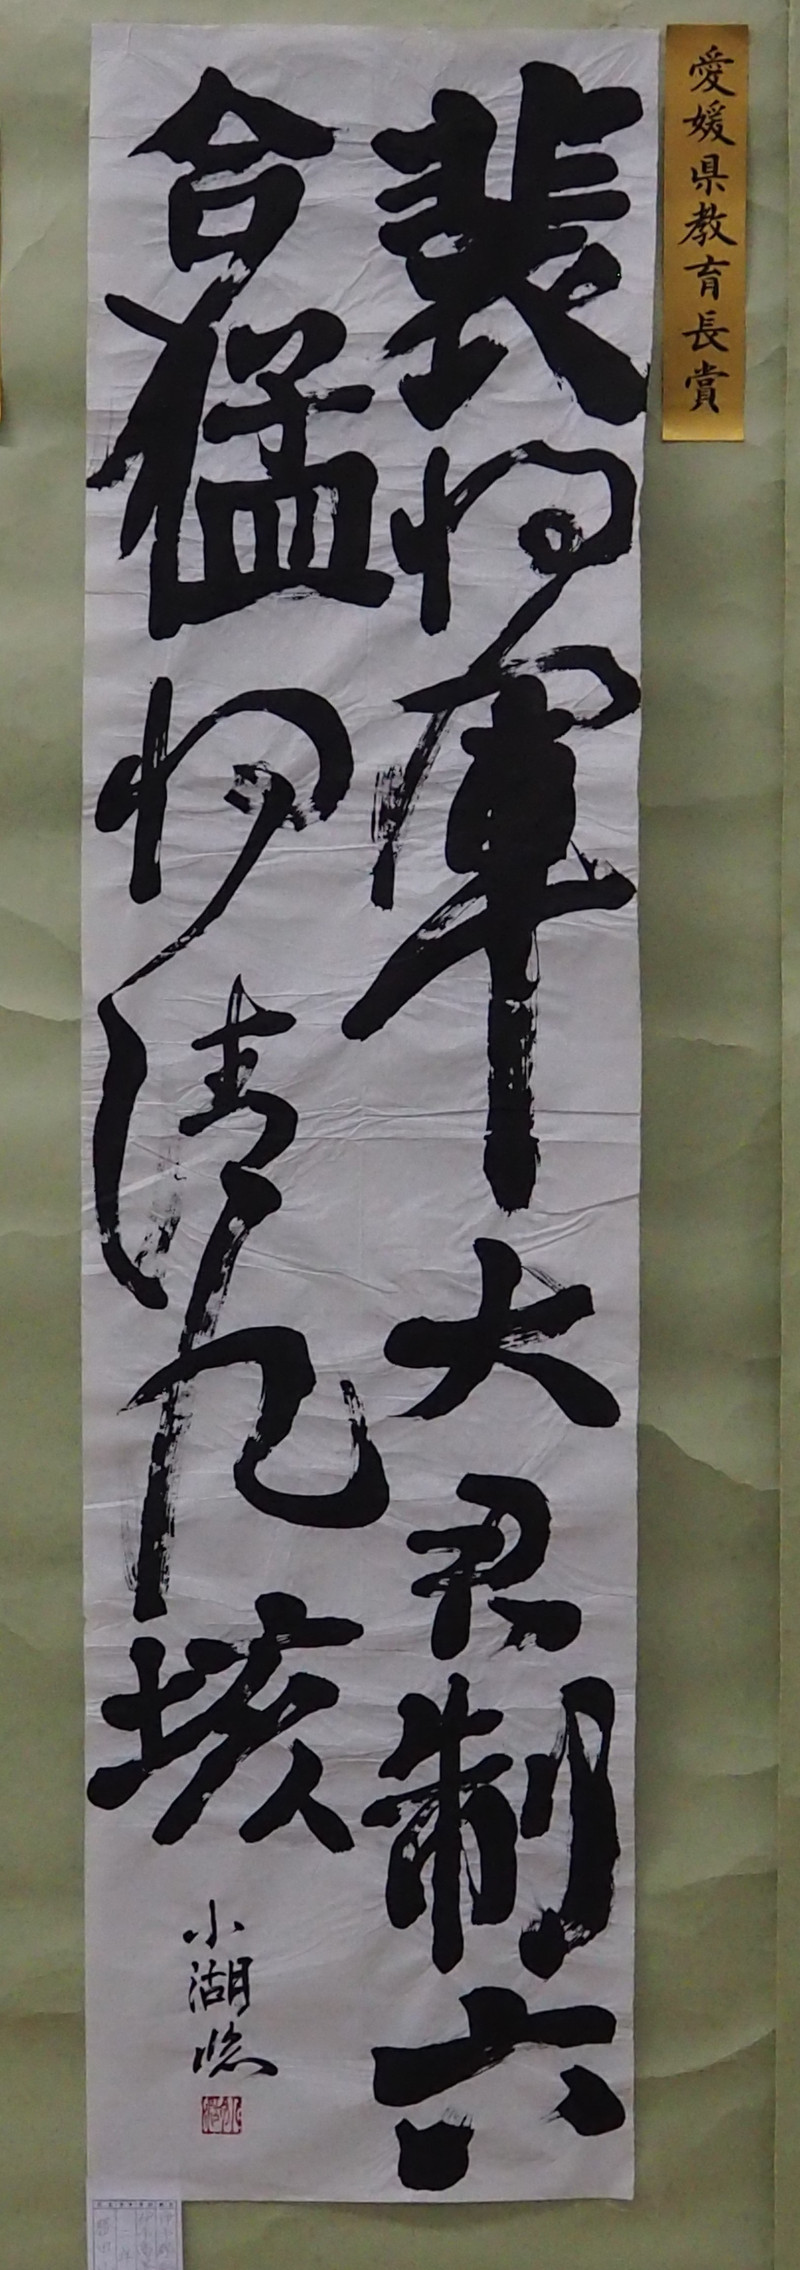 愛媛県教育長賞
裴将軍大君制六
合猛将清九垓
小湖臨